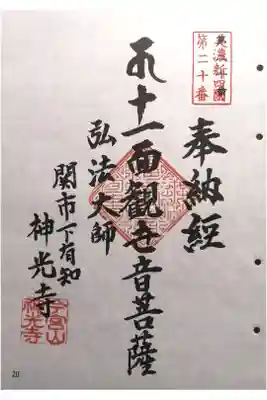 美濃新四國
第二十番
奉納経
十一面観世音菩薩
弘法大師
関市下有知
神光寺
20